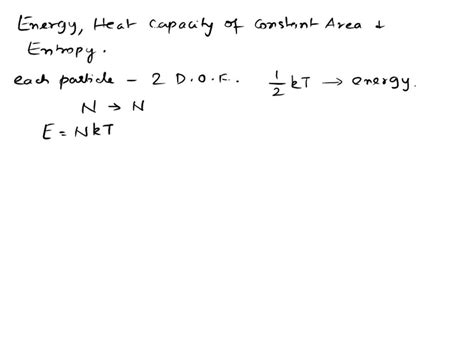 Energy, Heat Capacity of Constant Area +
Entropy.
each particle - 2 D.O.F. 1/2 kT → energy.
N → N
E = NkT